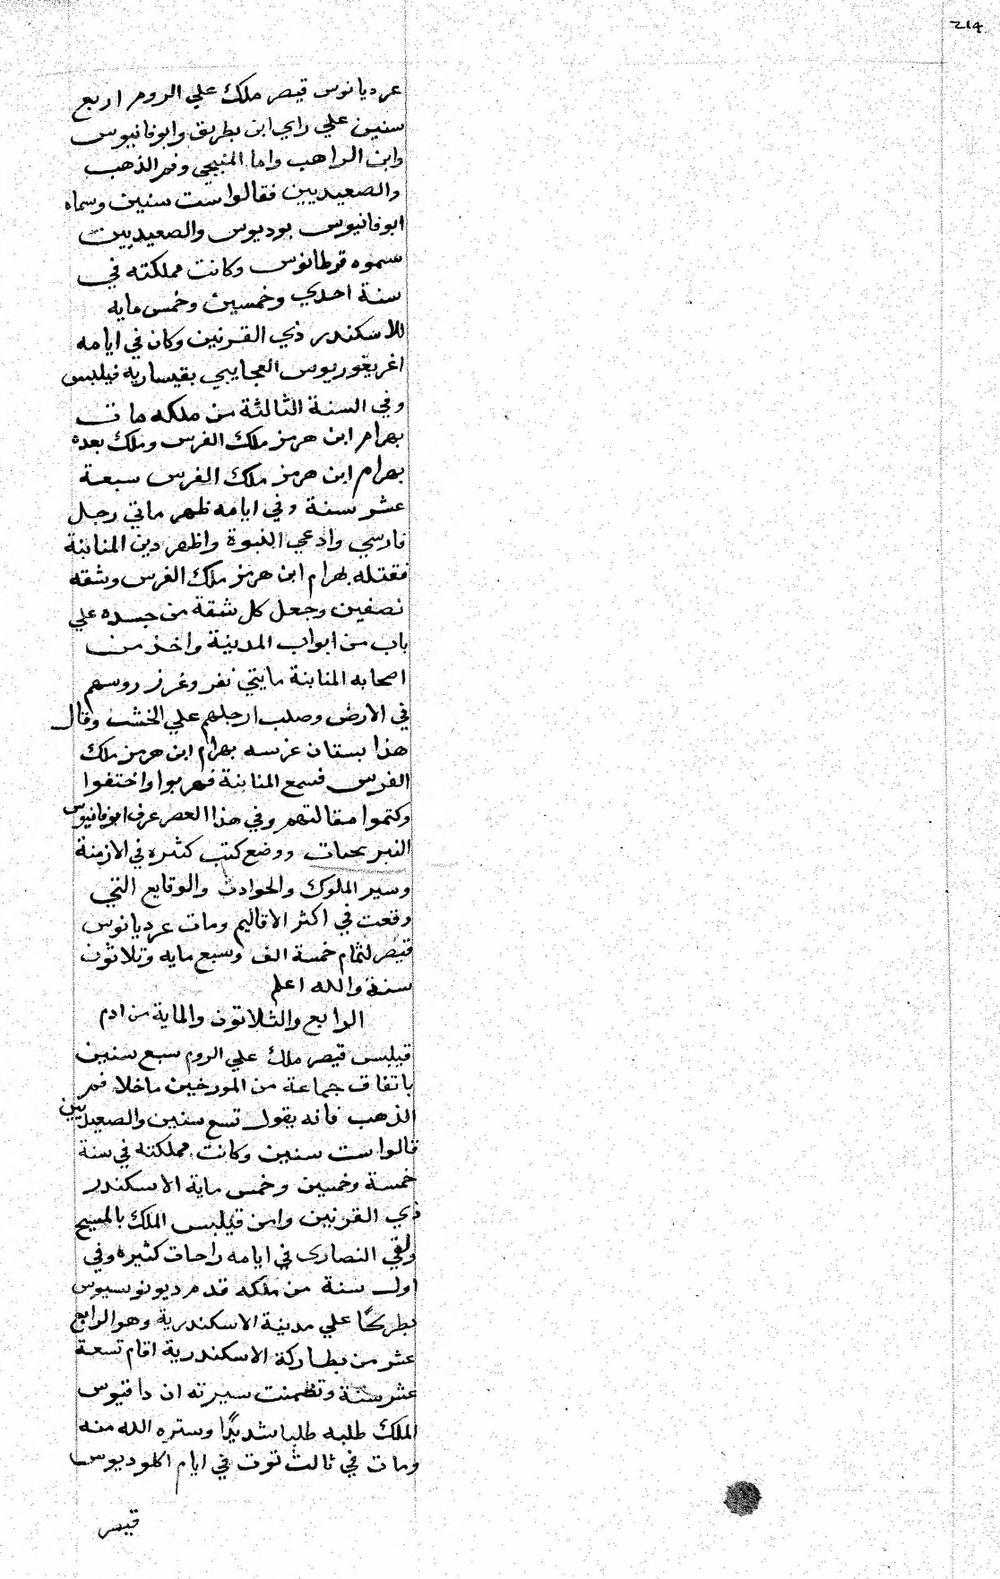 214
عرديانوس قيصر ملك علي الروم اربع
سنين علي راي ابن بطريق وابوفانيوس
وابن الراهب واما المنبجي وفم الذهب
والصعيديين فقالوا ست سنين وسماه
ابوفانيوس بوديوس والصعيديين
سموه قرطانوس وكانت مملكته في
سنة احدي وخمسين وخمس مايه
للاسكندر ذي القرنين وكان في ايامه
اغريغوريوس العجايبي بقيساريه فيلبس
وفي السنة الثالثة من ملكه مات
بهرام ابن هرمز ملك الفرس وملك بعده
بهرام ابن هرمز ملك الفرس سبعة
عشر سنة وفي ايامه ظهر ماني رجل
فارسي وادعي النبوة واظهر دين المنانية
فقتله بهرام ابن هرمز ملك الفرس وشقه
نصفين وجعل كل شقة من جسده علي
باب من ابواب المدينة واخذ من
اصحابه المنانية مايتي نفر وغرز روسهم
في الارض وصلب ارجلهم علي الخشب وقال
هذا بستان غرسه بهرام ابن هرمز ملك
الفرس فسمع المنانية فهربوا واختفوا
وكتموا مقالتهم وفي هذا العصر عرف ابوفانيوس
ووضع كتب كثره في الازمنة
وسير الملوك والحوادث والوقايع التي
وقعت في اكثر الاقاليم ومات عرديانوس
قيصر لتمام خمسة الف وسبع مايه وثلاثون
سنة والله اعلم
الرابع والثلاثون والماية من ادم
فيلبس قيصر ملك علي الروم سبع سنين
باتفاق جماعة من المورخين ماخلا فم
الذهب فانه يقول تسع سنين والصعيديين
قالوا ست سنين وكانت مملكته في سنة
خمسة وخمسين وخمس ماية الاسكندر
ذي القرنين وامن فيلبس الملك بالمسيح
ولقي النصاري في ايامه راحات كثيره وفي
اول سنة من ملكه قدم ديونوسيوس
بطركا علي مدينة الاسكندرية وهو الرابع
عشر من بطاركة الاسكندرية اقام تسعة
عشر سنة وتضمنت سيرته ان داقيوس
الملك طلبه طلبا شديدا وستره الله منه
ومات في ثالث توت في ايام اكلوديوس
قيصر